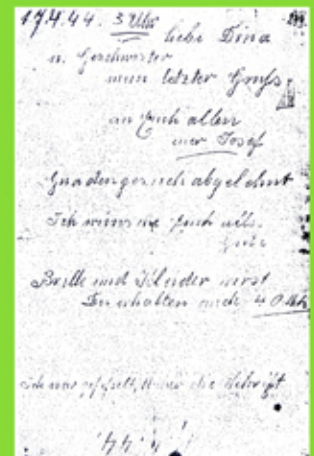 17.4.44. 3 Uhr
liebe Dina
u. Geschwister
mein letzter Gruss
an Euch allen
euer Josef
Gnadengesuch abgelehnt
Ich wünsche Euch alles
Gute
Brille und Kleider wirst
Du erhalten auch 40 Mk
Ich war gefesselt, die Schrift